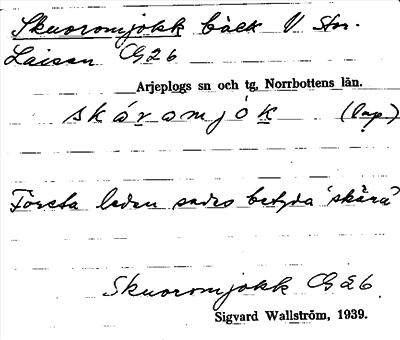 Skuoromjokk bäck V Stor-
Laisan G26
Arjeplogs sn och tg, Norrbottens län.
skárомjók (lap.)
Första leden sades betyda 'skåra'
Skuoromjokk G26.
Sigvard Wallström, 1939.